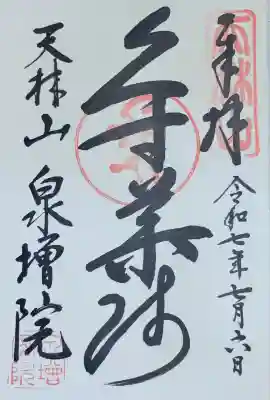 奉拝
令和七年七月六日
薬師
天林山 泉増院